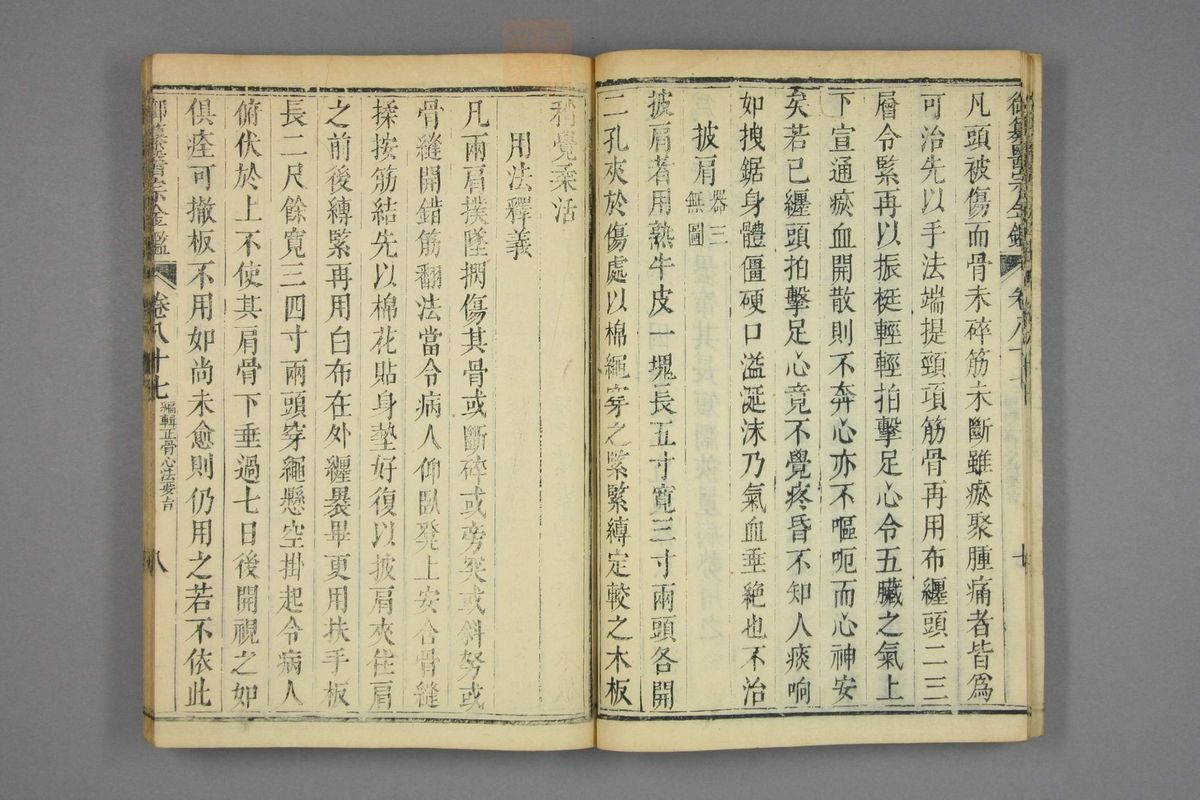 御纂醫宗金鑑 卷八十七 七
凡頭被傷而骨未碎筋未斷雖瘀聚腫痛者皆爲
可治先以手法端提頸項筋骨再用布纏頭二三
層令緊再以振梃輕輕拍擊足心令五臟之氣上
下宣通瘀血開散則不奔心亦不嘔呃而心神安
矣若已纏頭拍擊足心竟不覺疼昏不知人痰响
如拽鋸身體僵硬口溢涎沫乃氣血垂絕也不治
披肩 器三 無圖
披肩者用熟牛皮一塊長五寸寬三寸兩頭各開
二孔夾於傷處以棉繩穿之緊緊縛定較之木板
稍覺柔活
用法釋義
凡兩肩撲墜捫傷其骨或斷碎或旁突或斜努或
骨縫開錯筋翻法當令病人仰臥凳上安合骨縫
揉按筋結先以棉花貼身墊好復以披肩夾住肩
之前後縛緊再用白布在外纏裹畢更用扶手板
長二尺餘寬三四寸兩頭穿繩懸空掛起令病人
俯伏於上不使其肩骨下垂過七日後開視之如
俱痊可撤板不用如尚未愈則仍用之若不依此
御纂醫宗金鑑 卷八十七 編輯正骨心法要旨 八